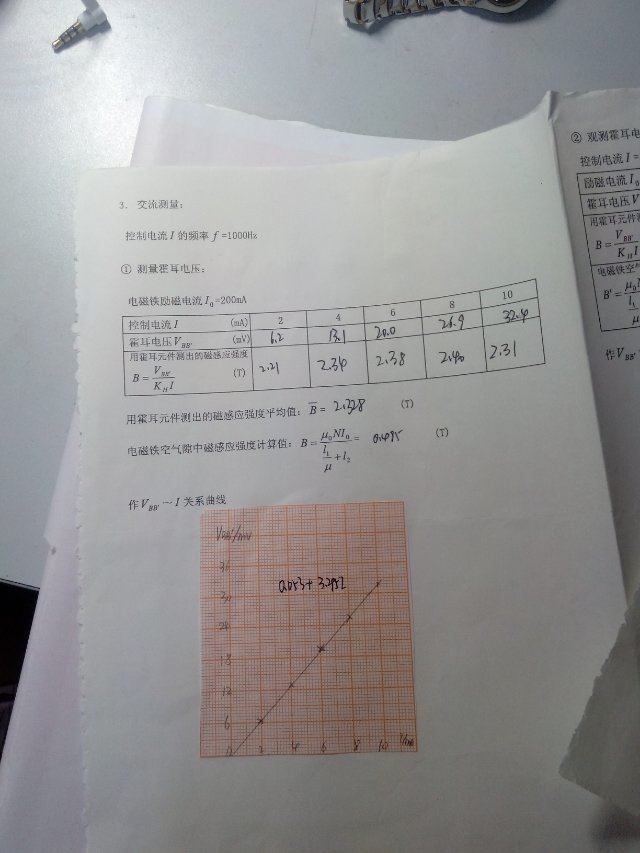 3. 交流测量:
控制电流 I 的频率 f =1000Hz
① 测量霍耳电压:
电磁铁励磁电流 I₀=200mA
控制电流 I (mA) 2 4 6 8 10
霍耳电压 V_BB' (mV) 6.2 13.1 20.0 26.9 32.4
用霍耳元件测出的磁感应强度
B = V_BB' / K_H I (T) 2.21 2.34 2.38 2.40 2.31
用霍耳元件测出的磁感应强度平均值: B̅ = 2.328 (T)
电磁铁空气隙中磁感应强度计算值: B = μ₀NI₀ / (l₁/μ + l₂) = 0.495 (T)
作 V_BB' ~ I 关系曲线
V_BB'/mV
36
30
24
18
12
6
0 2 4 6 8 10
② 观测霍耳电
控制电流 I =
励磁电流 I₀
霍耳电压 V
用霍耳元件测
B = V_BB' / K_H I
电磁铁空
B' = μ₀N / l₁ / μ
作 V_BB'